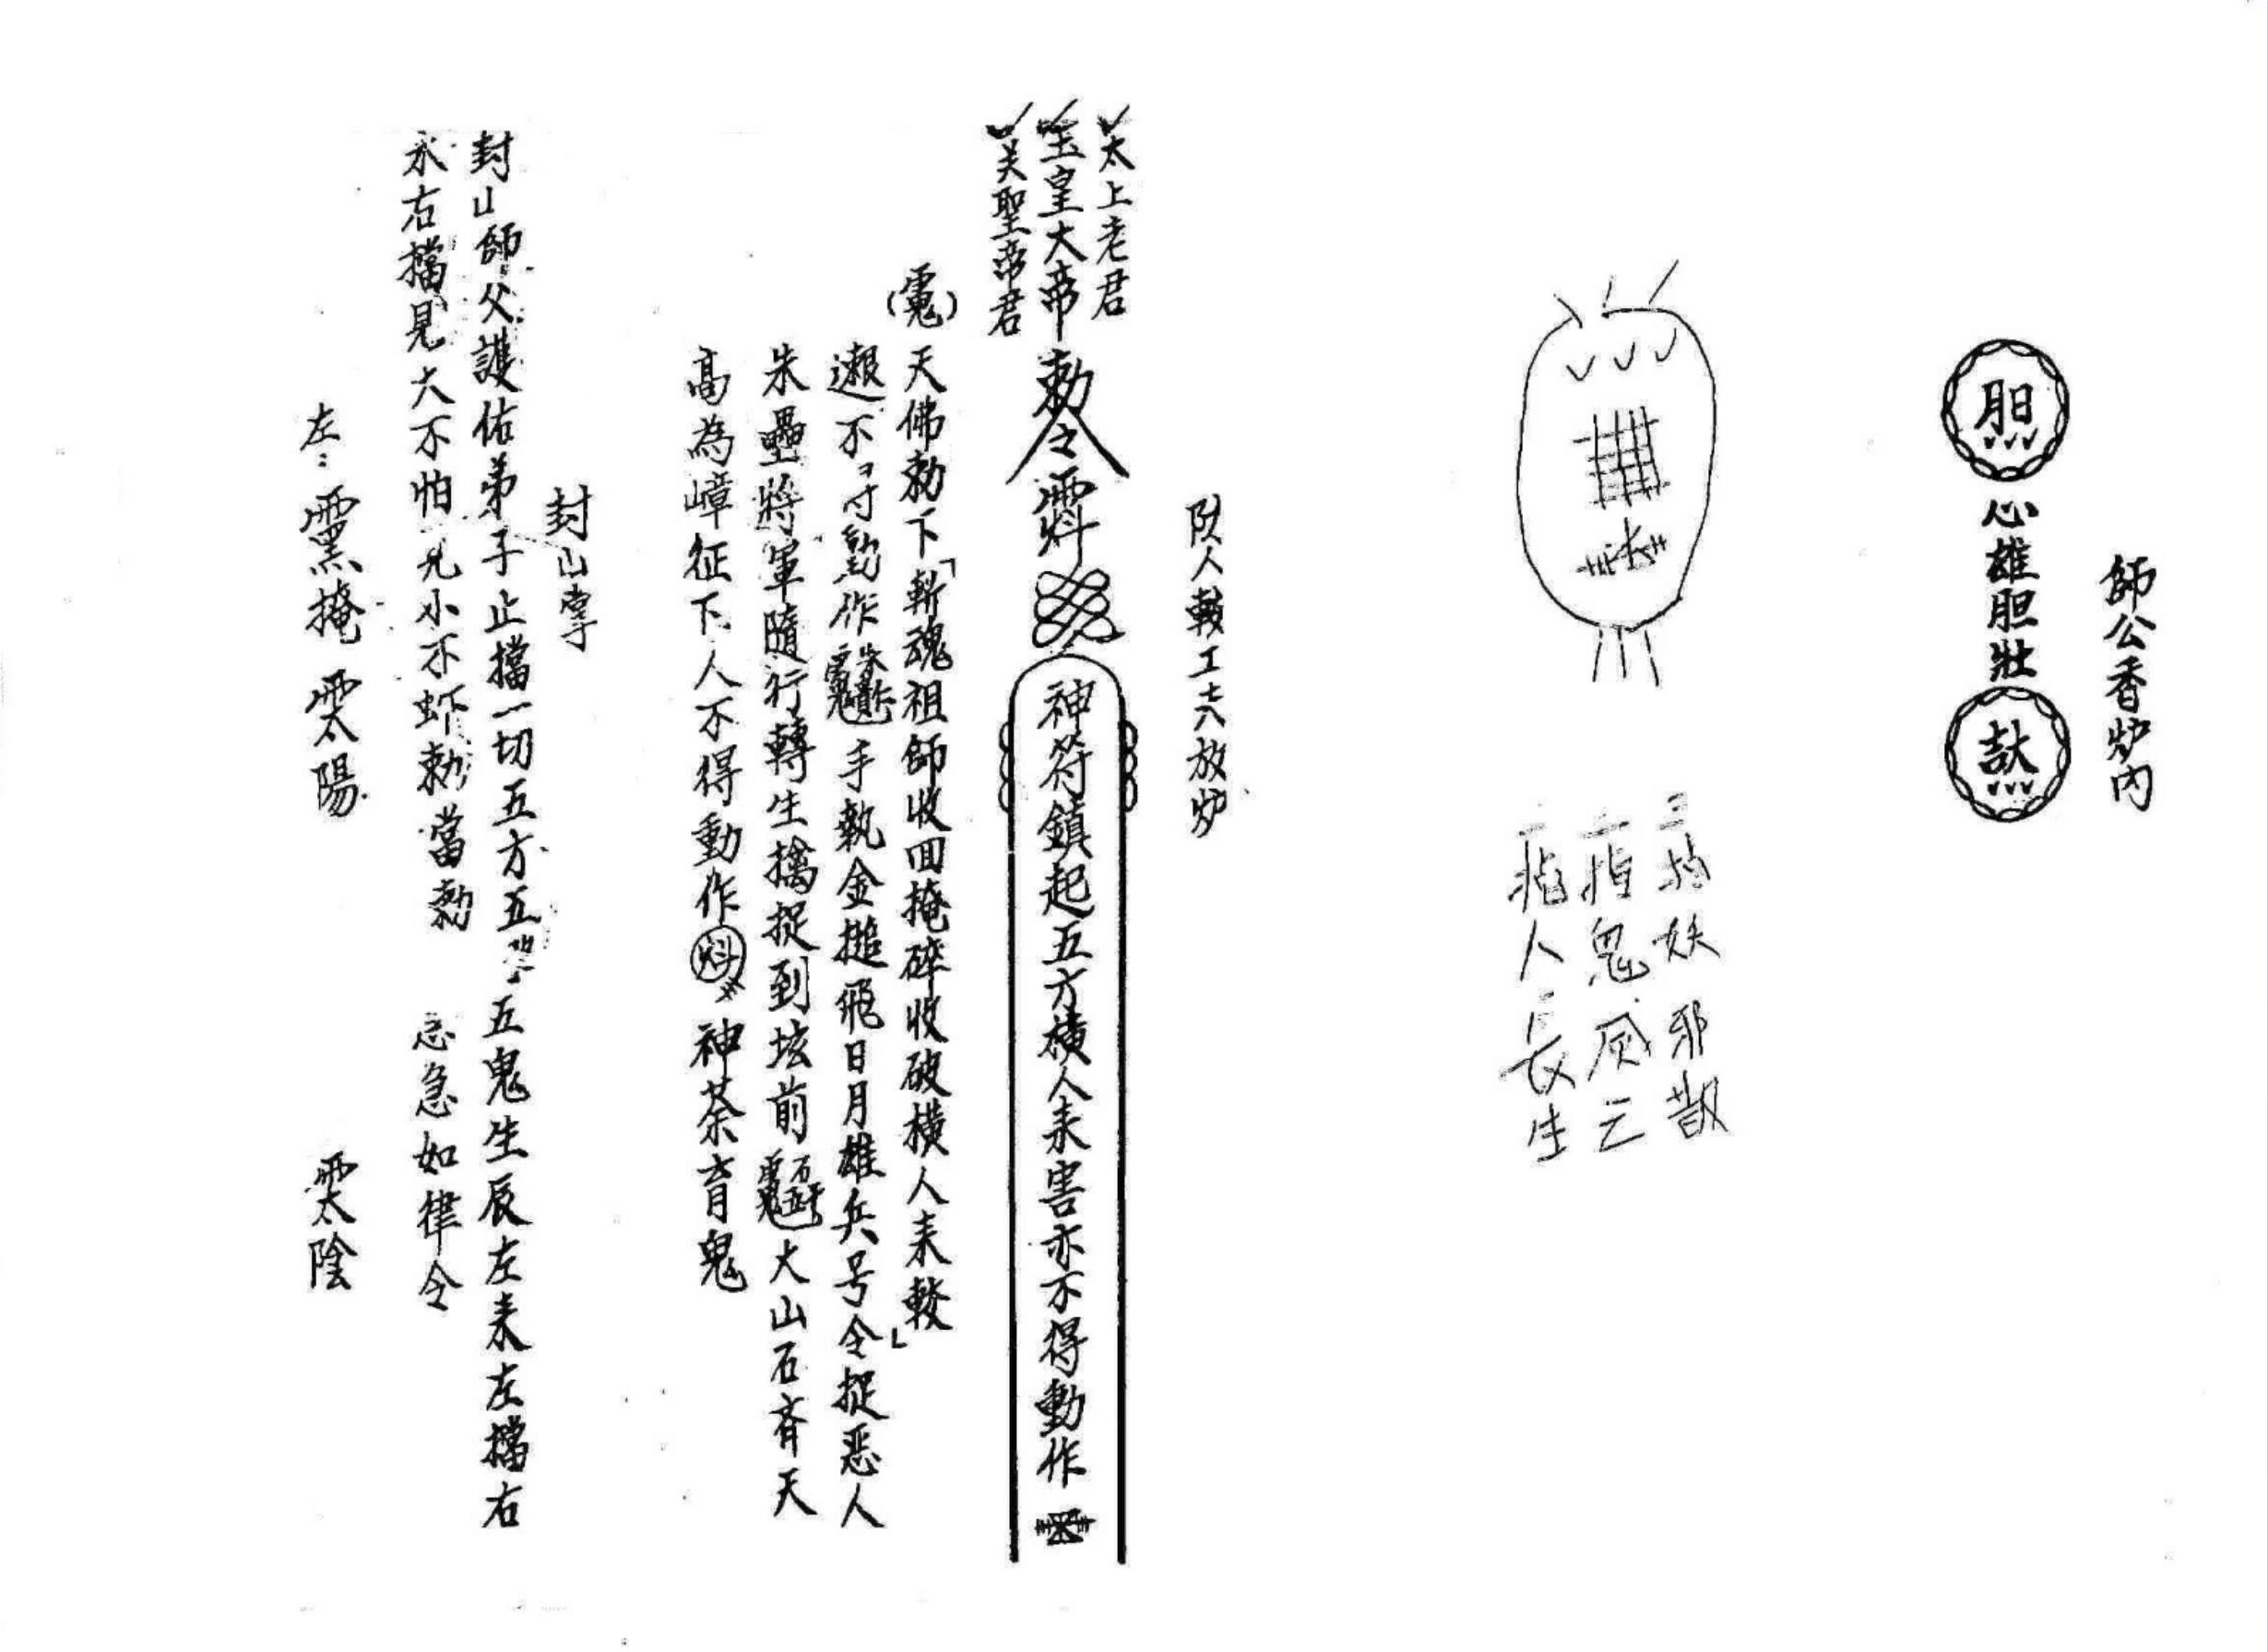 師公香炉内
胆
心雄胆壯
三指妖邪散
二指鬼灰亡
一指人長生
队人較工夫放炉
太上老君
玉皇大帝
关聖帝君
勅令
神符鎮起五方橫人来害亦不得動作
天佛勅下「斬魂祖師收回掩碎收破橫人来較」
不 作 手執金搥飛日月雄兵号令捉恶人
朱壘將軍隨行轉生擒捉到坛前 大山石斉天
高為嶂征下人不得動作 神荼育鬼
封山掌
封山師父護佑弟子止擋一切五方五 五鬼生辰左来左擋右
来右擋見大不怕見小不 勅當勅 急急如律令
左: 掩 陽
陰